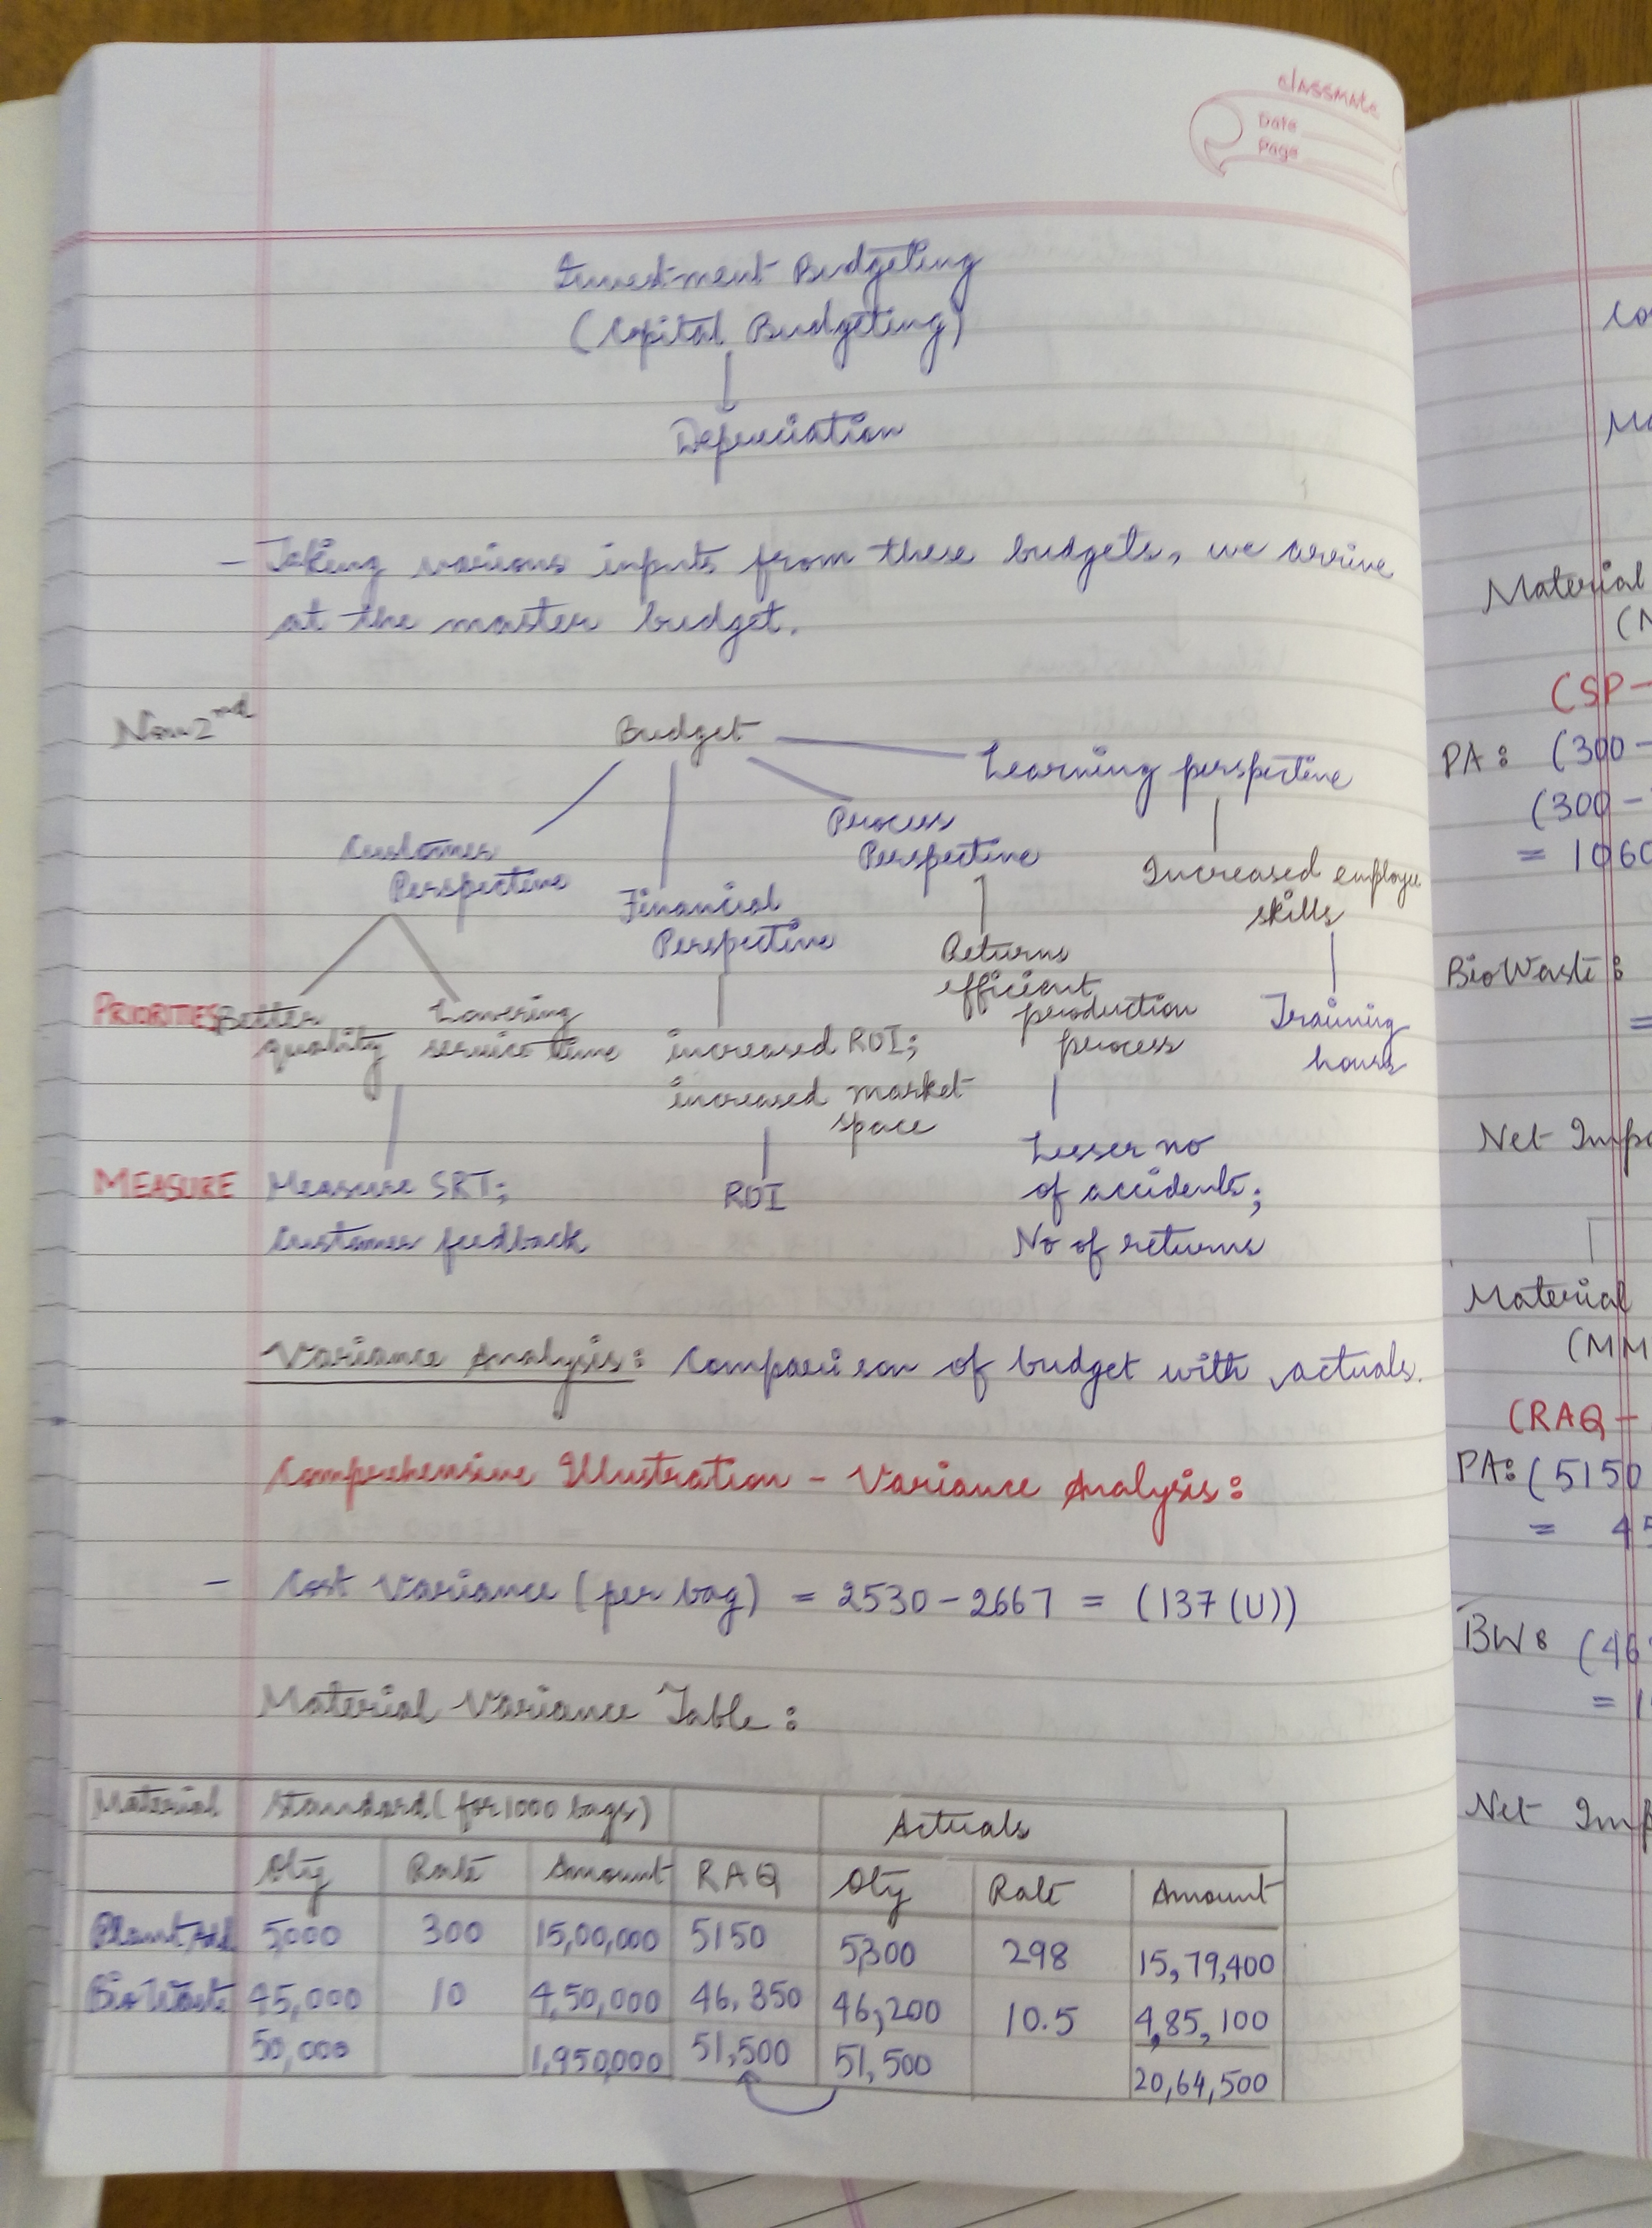 classmate
Date
Page
Investment Budgeting
(Capital Budgeting)
Depreciation
- Taking various inputs from these budgets, we arrive
at the master budget.
Nov 2nd
Budget
Learning perspective
Customer
Perspective
Financial
Perspective
Process
Perspective
Increased employee
skills
PRIORITIES
Better
quality
Lowering
service time
increased ROI;
increased market
space
Returns
efficient
production
process
Training
hours
MEASURE
Measure SRT;
Customer feedback
ROI
Lesser no
of accidents;
No of returns
Variance Analysis: Comparison of budget with actuals.
Comprehensive Illustration - Variance Analysis:
- Cost Variance (per bag) = 2530 - 2667 = (137 (U))
Material Variance Table:
Material Standard (for 1000 bags) Actuals
Qty Rate Amount RAQ Qty Rate Amount
Plant 5000 300 15,00,000 5150 5300 298 15,79,400
BioWaste 45,000 10 4,50,000 46,350 46,200 10.5 4,85,100
50,000 1,950,000 51,500 51,500 20,64,500
Material
(SP-
PA: (300-
(300-
= 1060
BioWaste:
=
Net Imp
Material
(MM
(RAQ-
PA: (5150
= 45
BW: (46
= 1
Net Imp